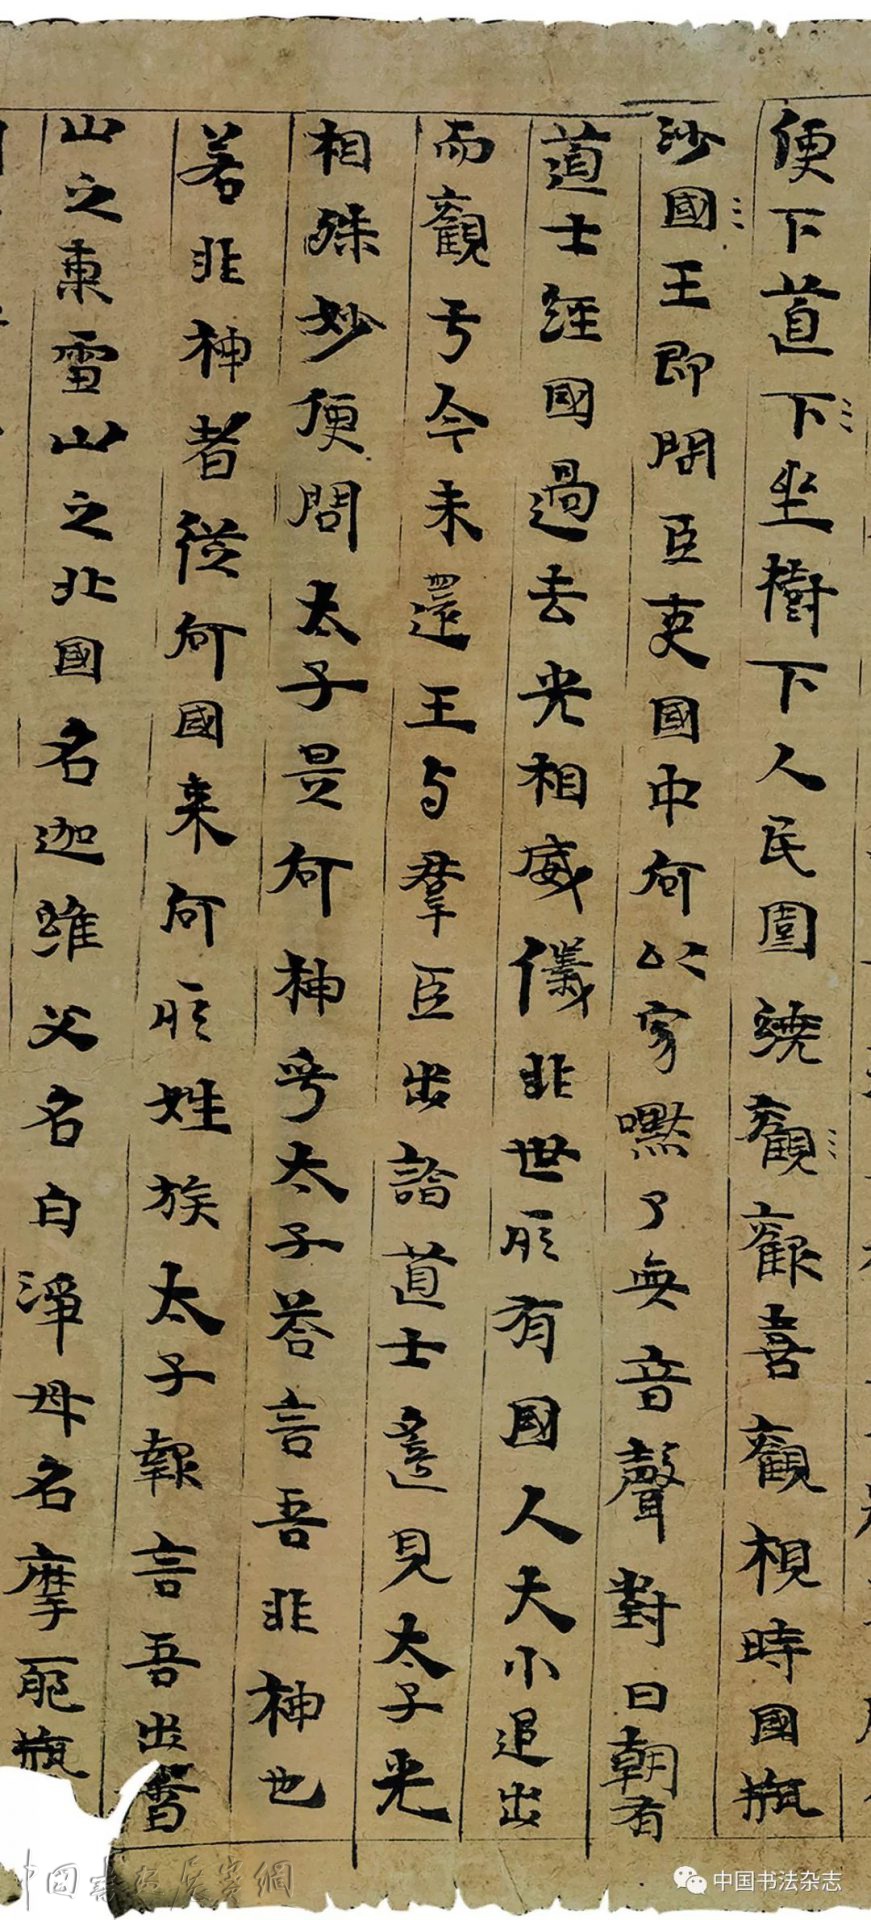 便下道下坐樹下人民圍繞觀觀喜觀相時國瓶
沙國王即問臣吏國中何以寂嘿了無音聲對曰朝有
道士經國過去光相威儀非世所有國人大小追出
而觀于今未還王与羣臣出詣道士遥見太子光
相殊妙便問太子是何神乎太子荅言吾非神也
若非神者從何國来何所姓族太子報言吾出香
山之東雪山之北國名迦維父名白淨母名摩耶瓶
中国书法杂志